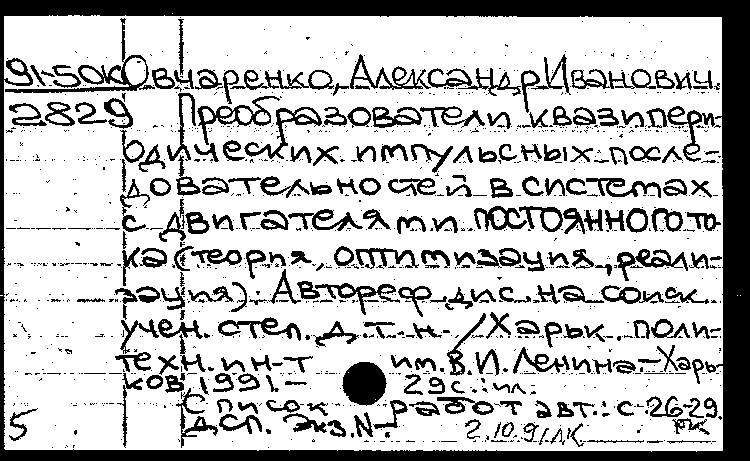 91-50к Овчаренко, Александр Иванович.
2829 Преобразователи квазипери-
одических импульсных после-
довательностей в системах
с двигателями постоянного то-
ка (теория, оптимизация, реали-
зация). Автореф. дис. на соиск.
учен. степ. д.т.н. /Харьк. поли-
техн. ин-т им. В.И. Ленина.-Харь-
ков, 1991.- 29 с.: ил.
Список работ авт.: с 26-29.
5 ДСП. Экз.N- 2.10.91 ЛК